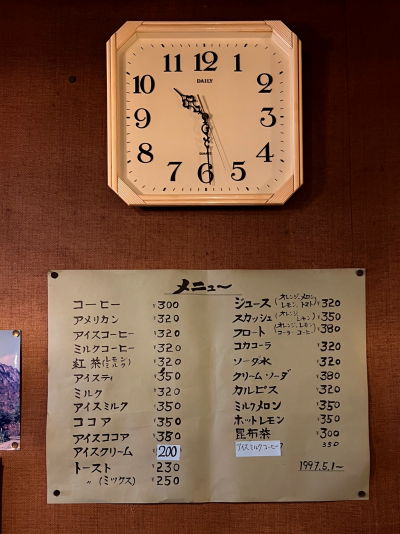 11 12 1
10 2
9 3
8 4
7 6 5
DAILY
QUARTZ
メニュー
コーヒー ¥300
アメリカン ¥320
アイスコーヒー ¥320
ミルクコーヒー ¥320
紅茶(レモン ミルク) ¥320
アイスティ ¥350
ミルク ¥320
アイスミルク ¥350
ココア ¥350
アイスココア ¥380
アイスクリーム 200
トースト ¥230
〃 (ミックス) ¥250
ジュース(オレンジ、メロン レモン、トマト) ¥320
スカッシュ(オレンジ、レモン) ¥350
フロート(オレンジ、レモン コーラ・コーヒ) ¥380
コカコーラ ¥320
ソーダ水 ¥320
クリームソーダ ¥380
カルピス ¥320
ミルクメロン ¥350
ホットレモン ¥350
昆布茶 ¥300
アイスミルクコーヒー 350
1997.5.1〜